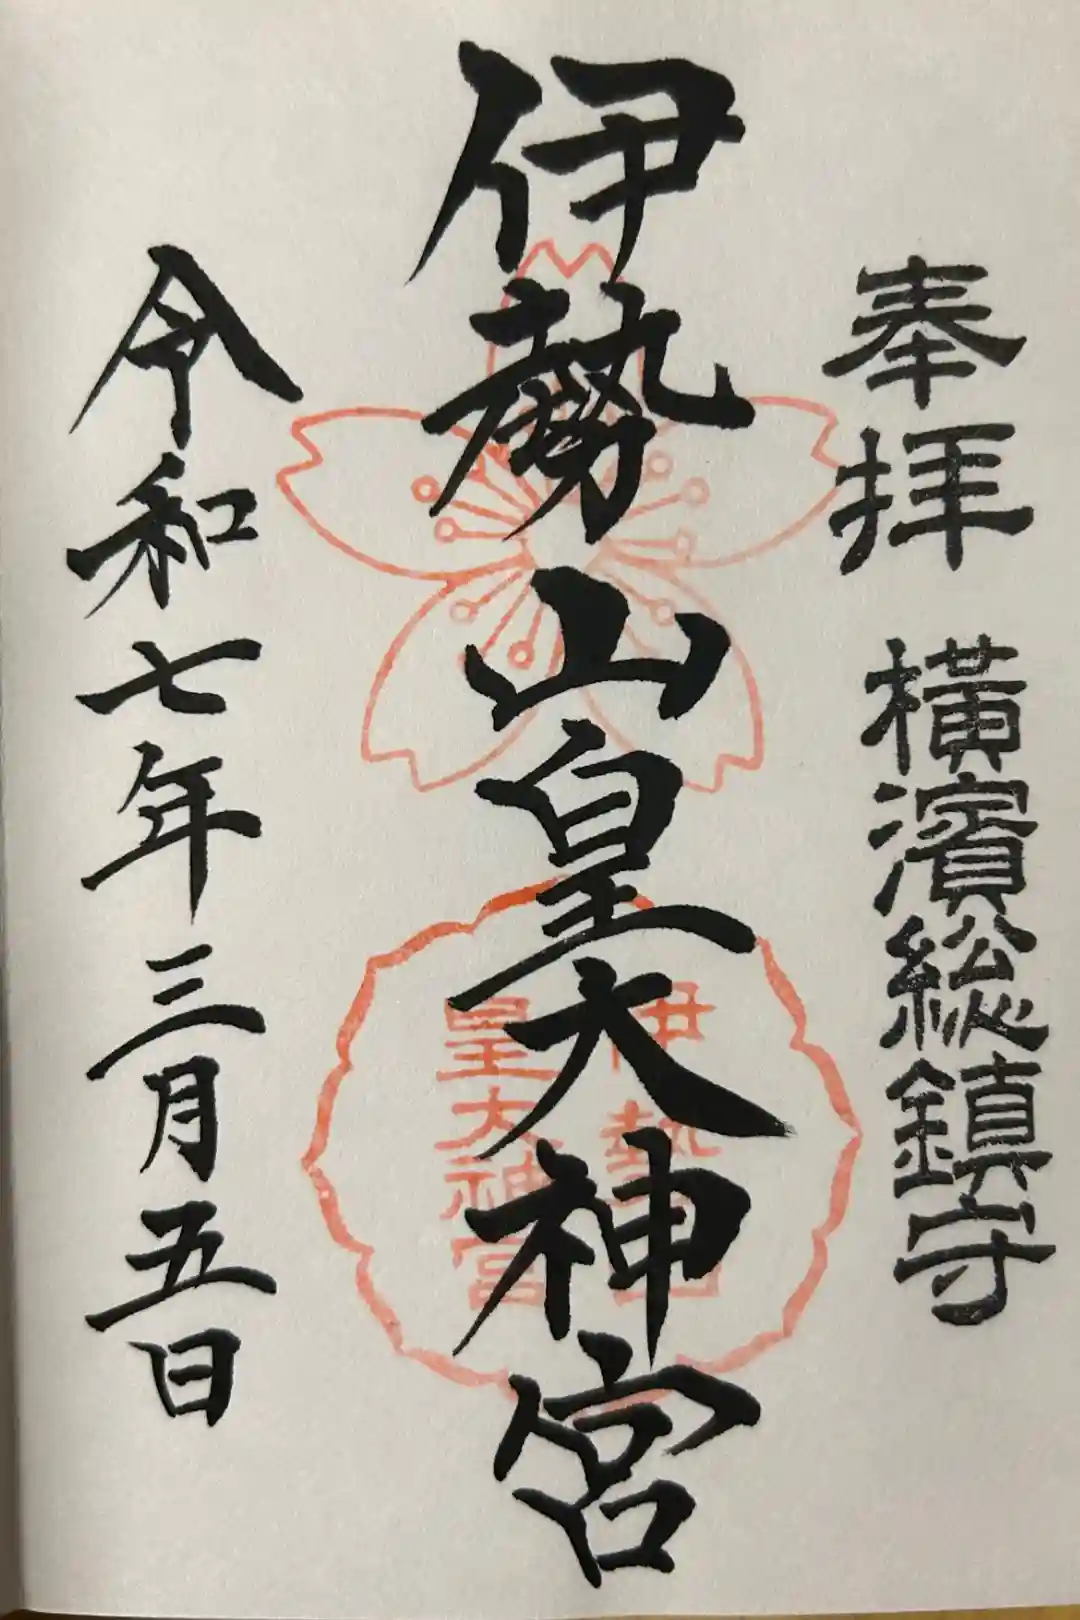 奉拝 横濱総鎮守
伊勢山皇大神宮
伊勢山
皇大神宮
令和七年三月五日